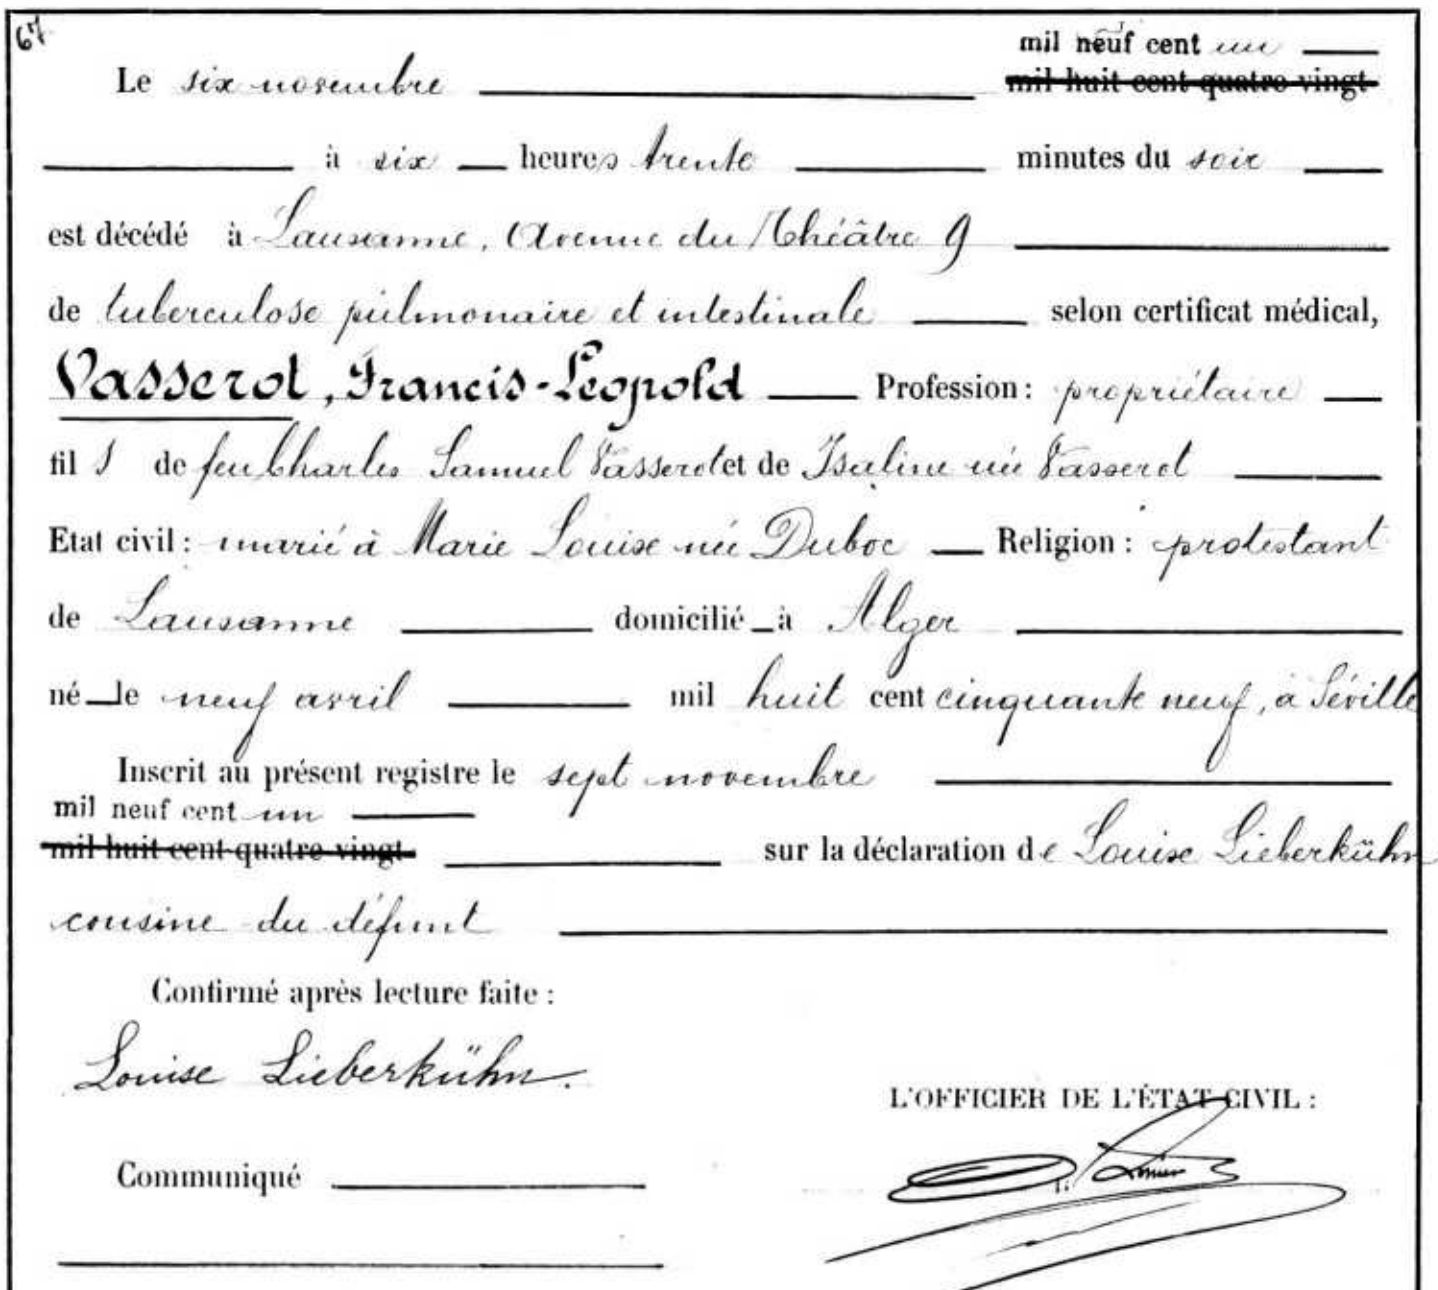 67
mil neuf cent un
Le six novembre mil huit cent quatre vingt
à six heures trente minutes du soir
est décédé à Lausanne, Avenue du Théâtre 9
de tuberculose pulmonaire et intestinale selon certificat médical,
Vasserot, Francis-Leopold Profession : propriétaire
fils de feu Charles Samuel Vasserot et de Isaline née Vasserot
Etat civil : marié à Marie Louise née Duboc Religion : protestant
de Lausanne domicilié à Alger
né le neuf avril mil huit cent cinquante neuf, à Séville
Inscrit au présent registre le sept novembre
mil neuf cent un
mil huit cent quatre vingt sur la déclaration de Louise Lieberkühn
cousine du défunt
Confirmé après lecture faite :
Louise Lieberkühn.
L'OFFICIER DE L'ÉTAT CIVIL :
Communiqué